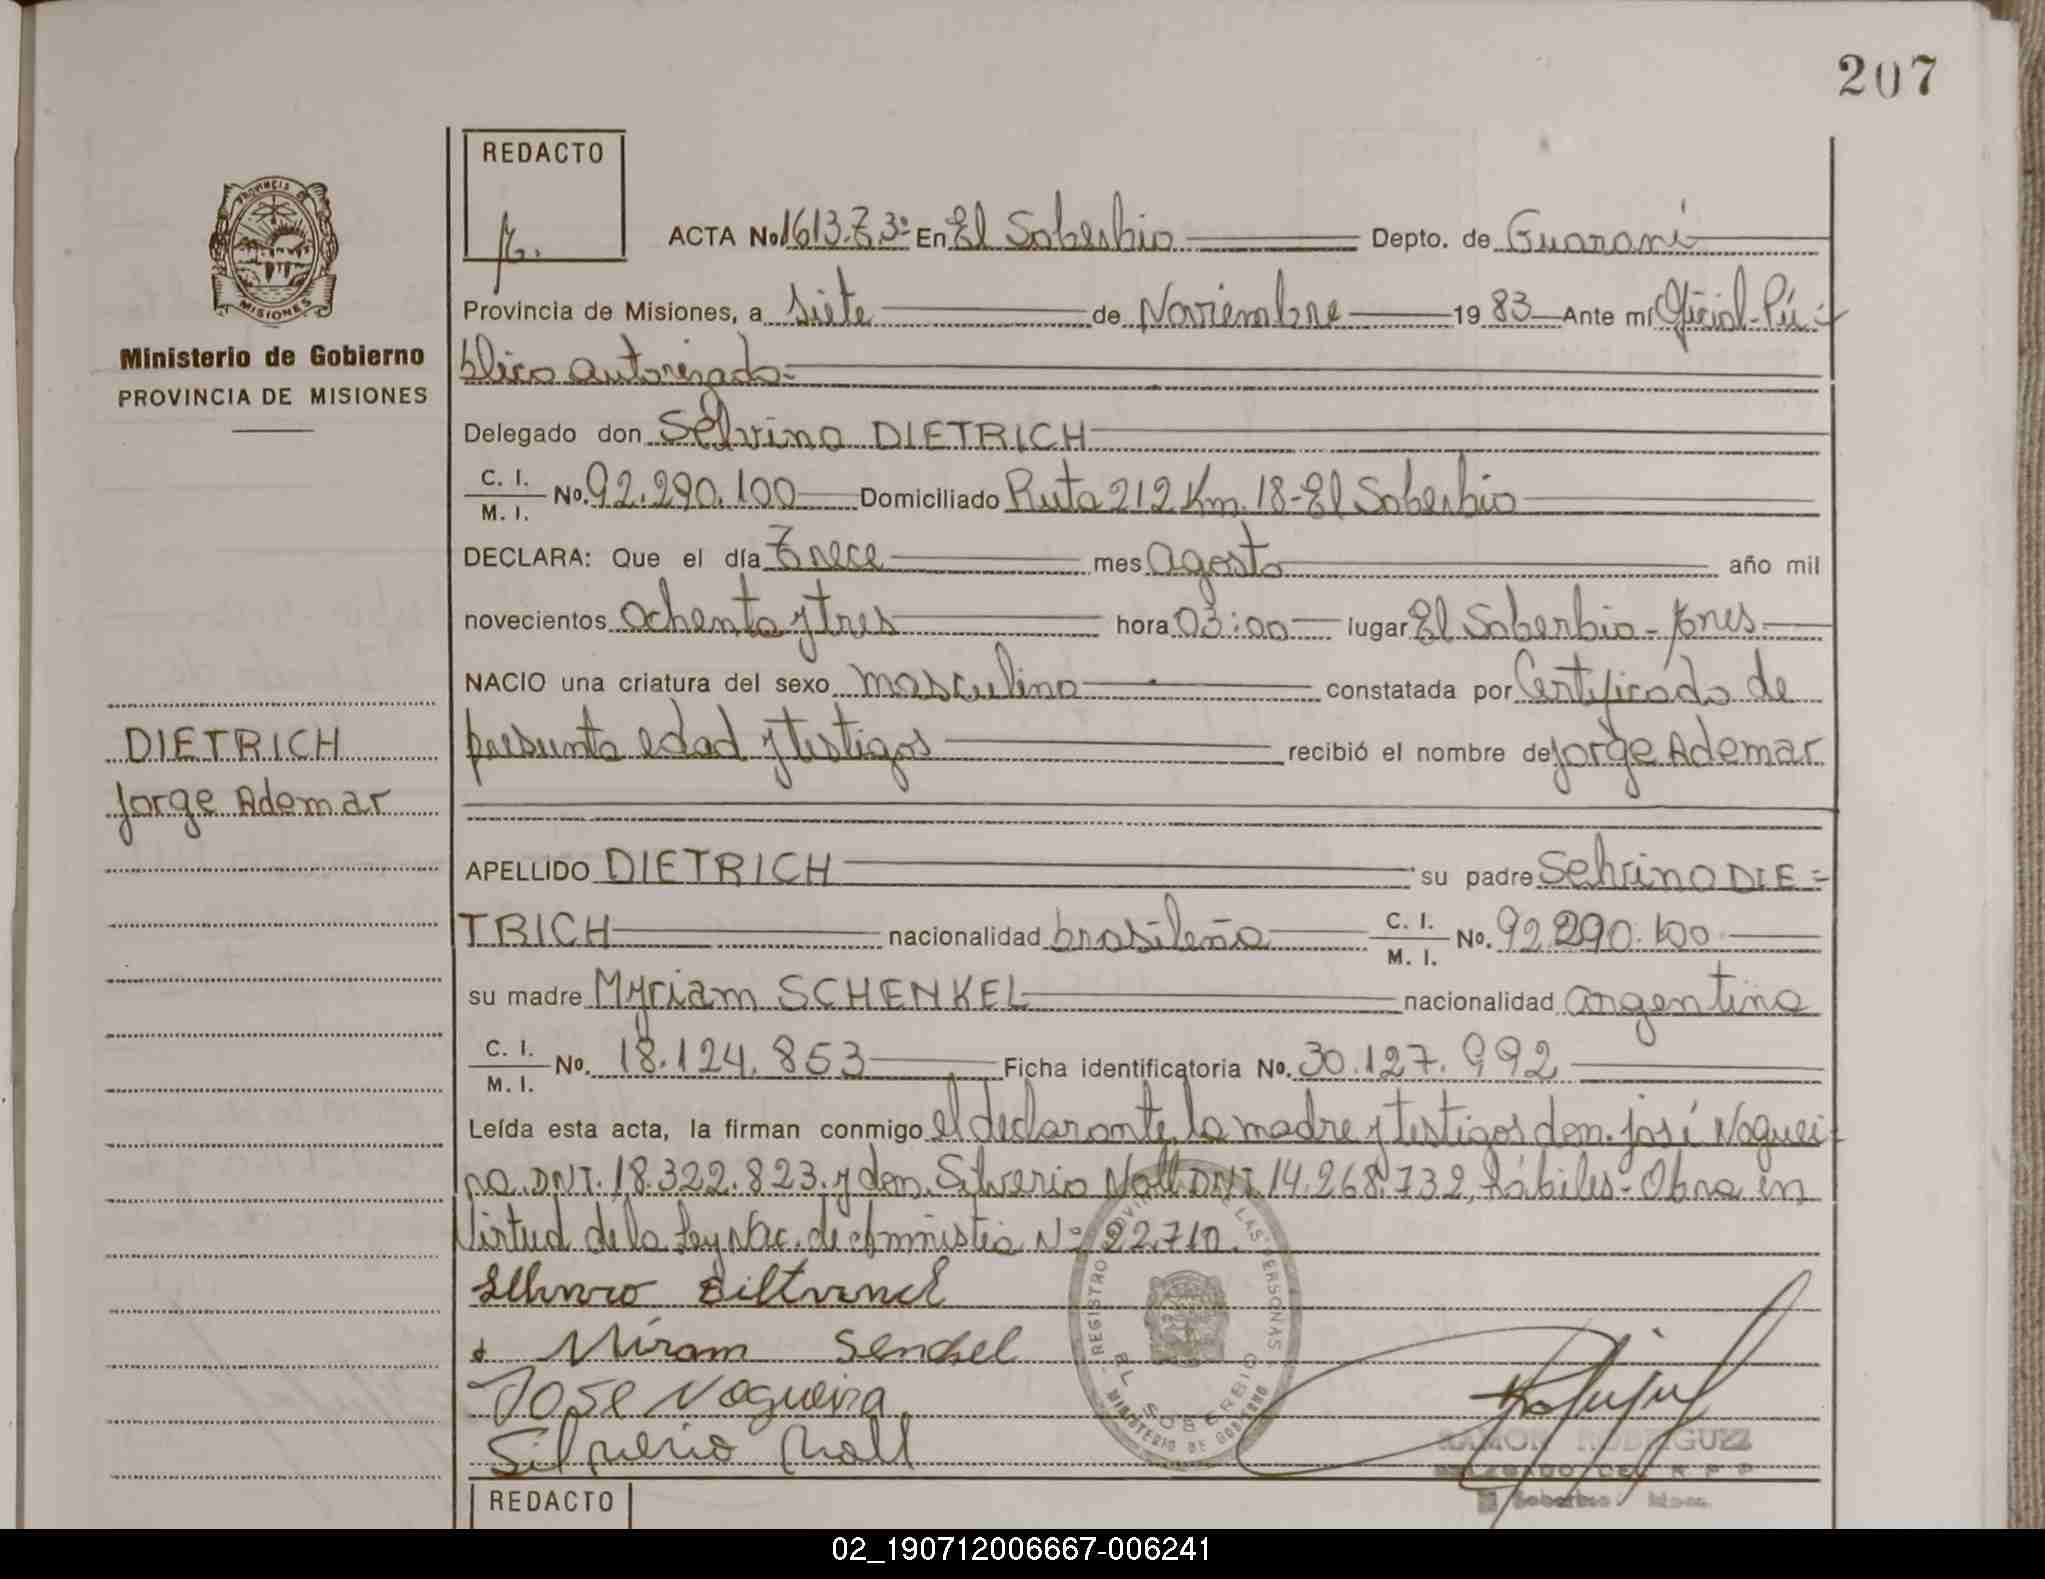 207
REDACTO
ACTA No 1613.T3º En El Soberbio Depto. de Guaraní
Provincia de Misiones, a siete de Noviembre 1983 Ante mí Oficial Pú-
blico autorizado-
Ministerio de Gobierno
PROVINCIA DE MISIONES
Delegado don Selvino DIETRICH
C. I.
M. I. No. 92.290.100 Domiciliado Ruta 212 Km. 18-El Soberbio
DECLARA: Que el día Trece mes agosto año mil
novecientos ochenta y tres hora 03:00 lugar El Soberbio - Mnes
NACIO una criatura del sexo masculino constatada por Certificado de
presunta edad y testigos recibió el nombre de Jorge Ademar
DIETRICH
Jorge Ademar
APELLIDO DIETRICH su padre Selvino DIE=
TRICH nacionalidad brasileña C. I.
M. I. No. 92.290.100
su madre Myriam SCHENKEL nacionalidad argentina
C. I.
M. I. No. 18.124.853 Ficha identificatoria No. 30.127.992
Leída esta acta, la firman conmigo el declarante, la madre y testigos don José Noguei
ra DNI. 18.322.823. y don Silverio Noll DNI. 14.268.732, hábiles- Obra en
Virtud de la Ley Nac. de Amnistia Nº 22.710.
Miram Senchel
José Nogueira
Silverio Noll
REGISTRO PROVINCIAL DE LAS PERSONAS
EL SOBERBIO
MINISTERIO DE GOBIERNO
RAMON RODRIGUEZ
DELEGADO DEL R P P
El Soberbio Mnes.
REDACTO
02_190712006667-006241